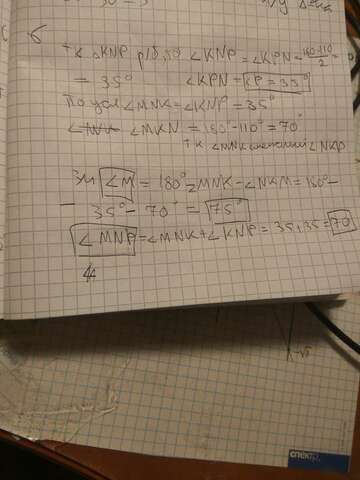 б
т.к △KNP р/б, то ∠KNP = ∠KPN = 180-110/2 =
= 35° ∠KPN = ∠P = 35°
По усл ∠MNK = ∠KNP = 35°
∠MKN = 180° - 110° = 70°
т к ∠MNK смежный ∠NKP
∠M = 180° - ∠MNK - ∠NKM = 180° -
- 35° - 70° = 75°
∠MNP = ∠MNK + ∠KNP = 35+35 = 70
спектр.